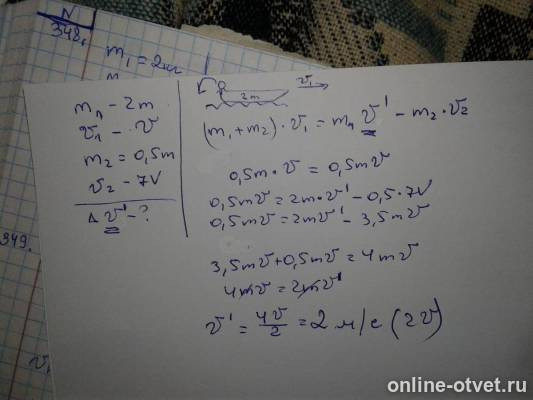 N
348.
m₁ = 2кг
mл - 2m
v₁ - v
m₂ = 0,5m
v₂ - 7V
Δ v' - ?
349.
2m
v₁
(m₁+m₂)·v₁ = mл v' - m₂·v₂
0,5m·v = 0,5mv
0,5mv = 2m·v' - 0,5·7V
0,5mv = 2mv' - 3,5mv
3,5mv+0,5mv = 4mv
4mv = 2mv'
v' = 4v/2 = 2 м/с (2v)
online-otvet.ru